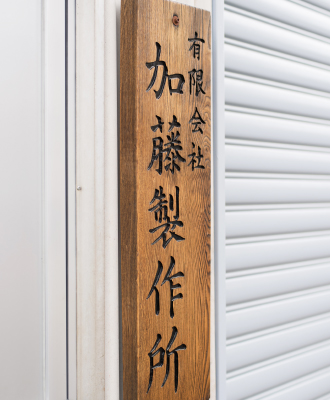 有限会社
加藤製作所